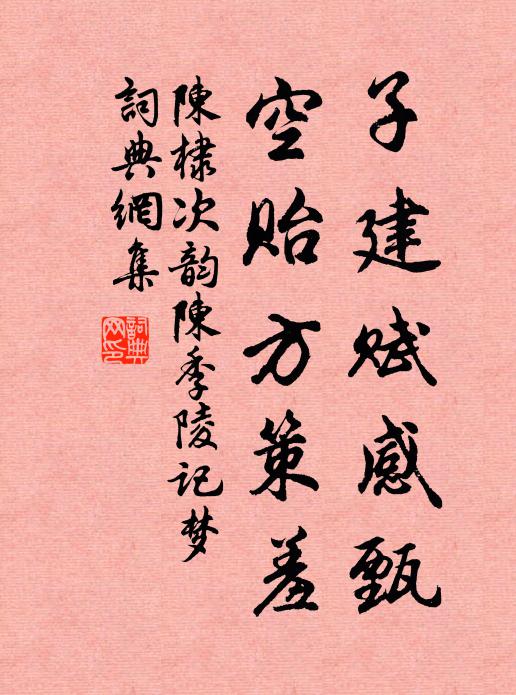 子建賦感甄
空貽方策羞
陳棣次韵陳季陵記梦
詞典網集
詞典
网印